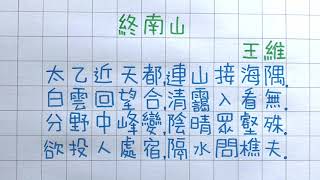 終南山
王維
太乙近天都,連山接海隅.
白雲回望合,清靄入看無.
分野中峰變,陰晴眾壑殊.
欲投人處宿,隔水問樵夫.